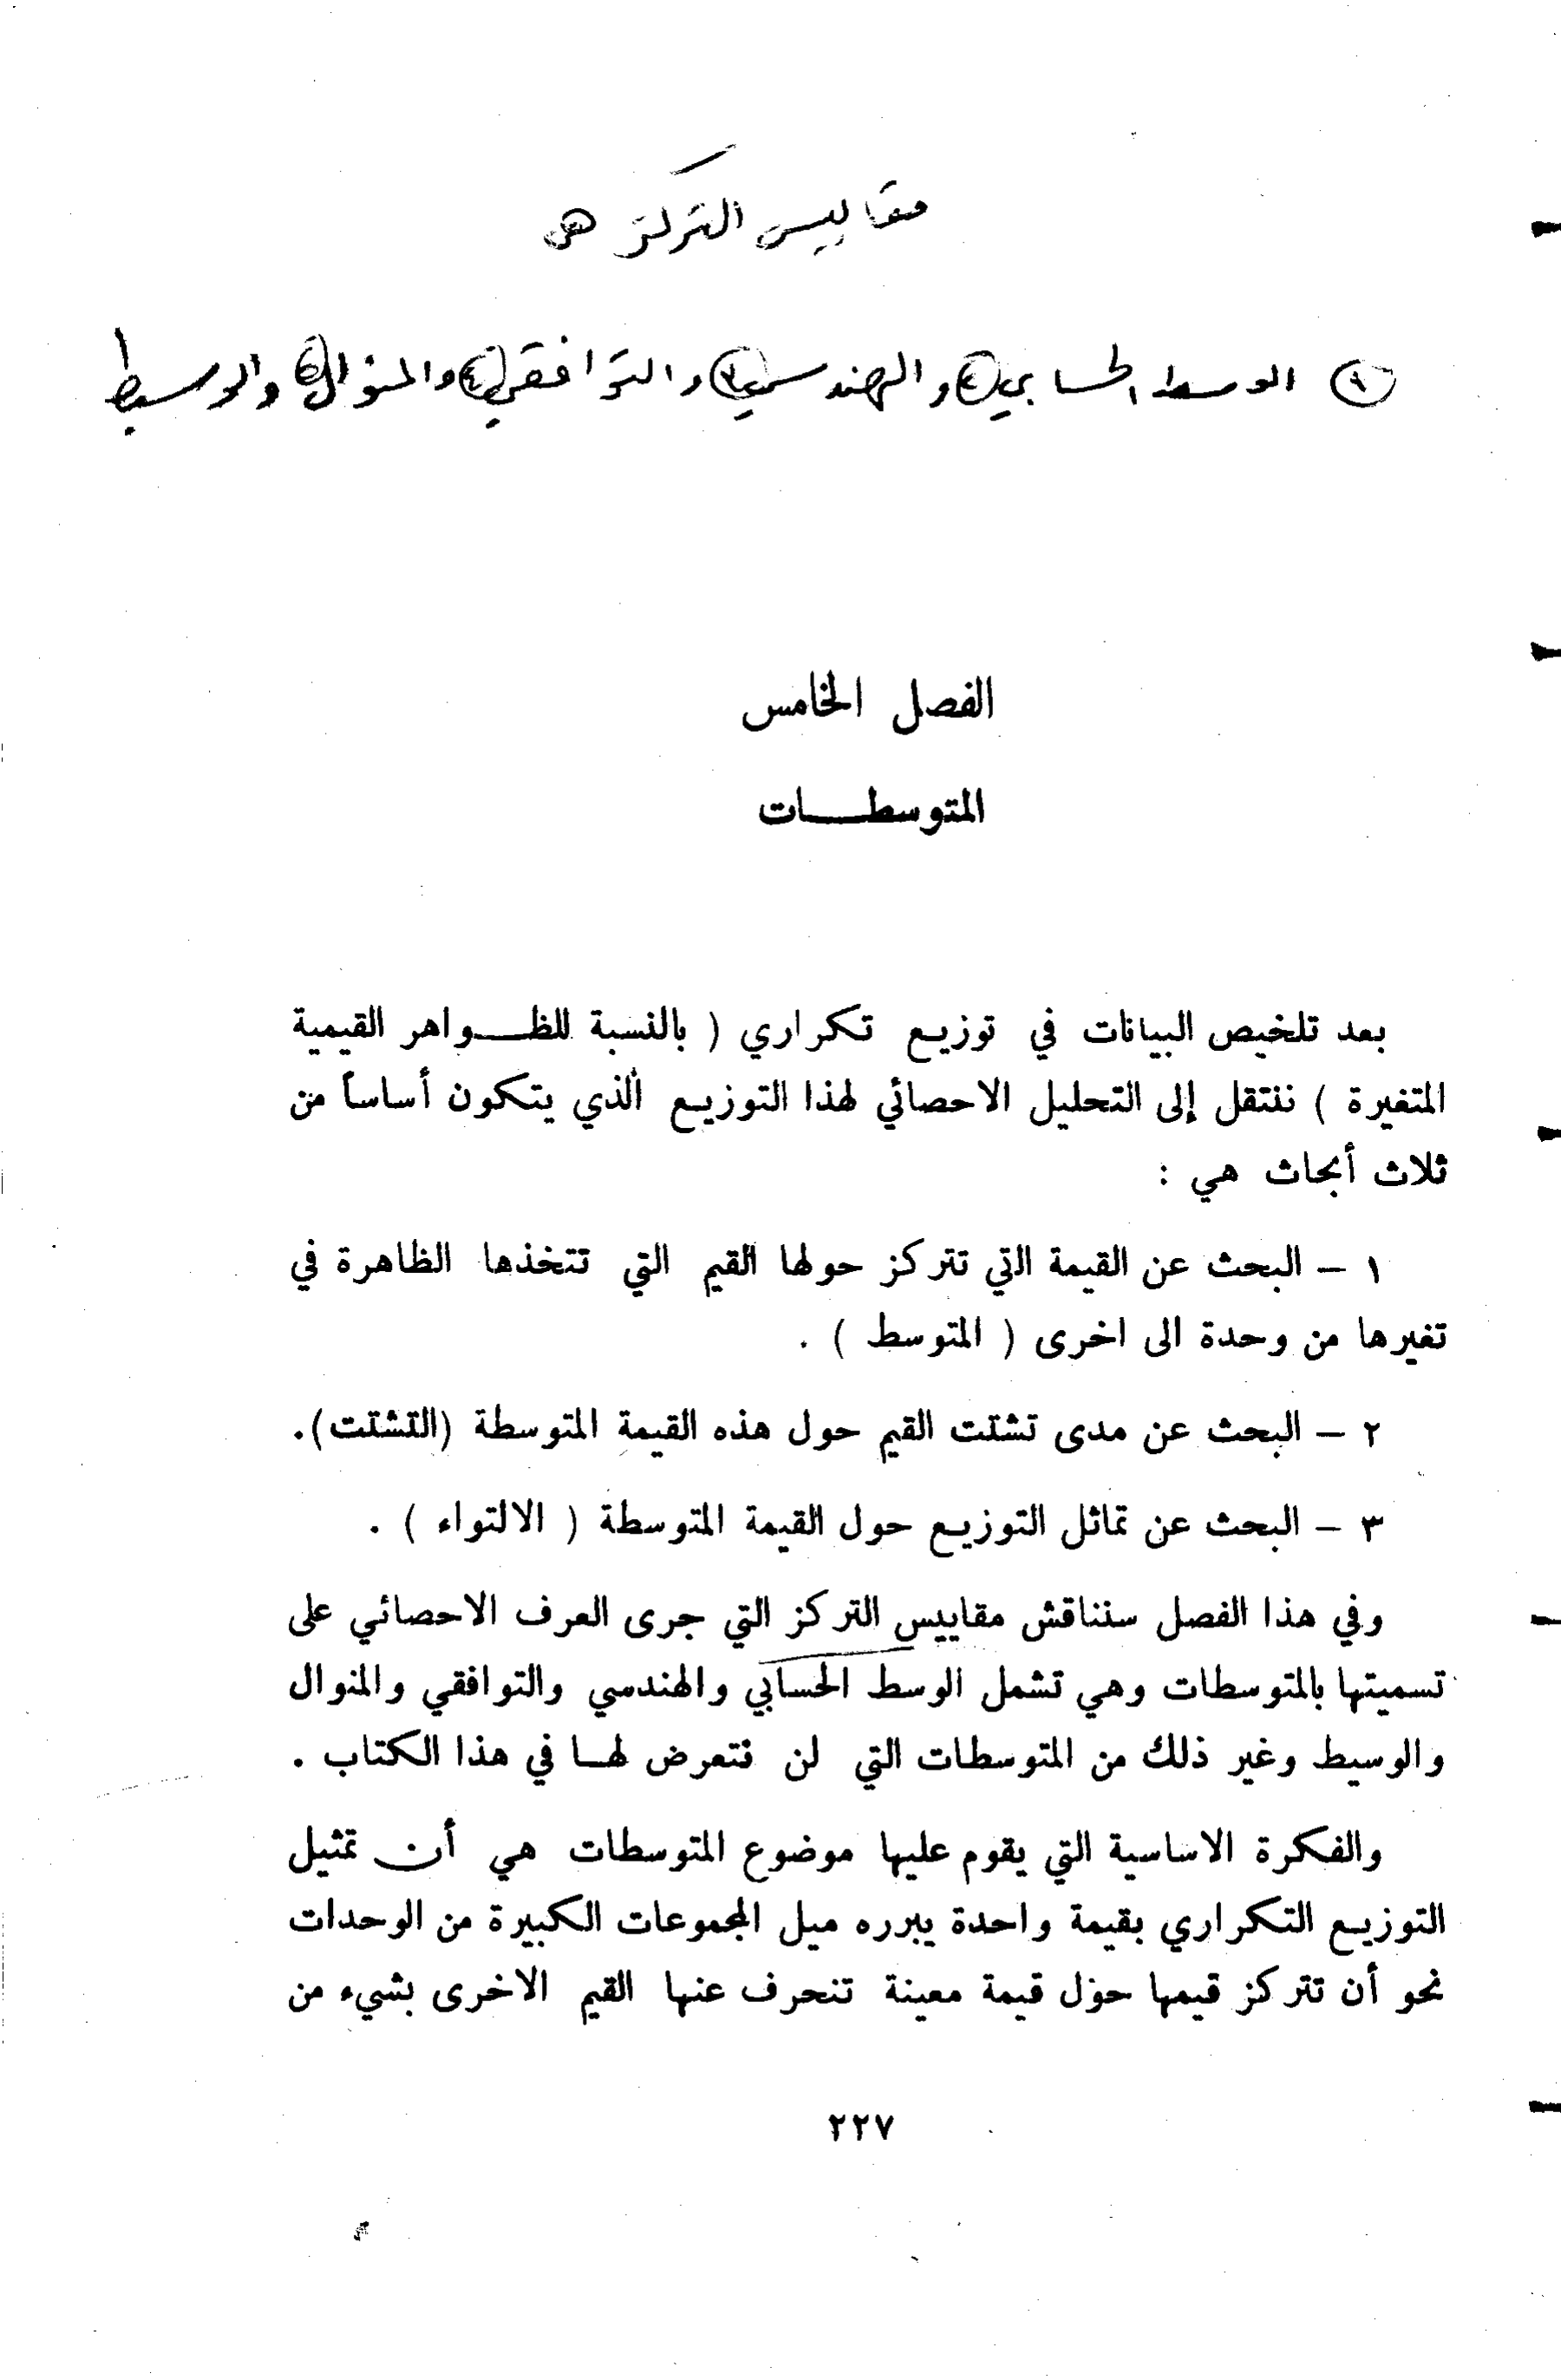 مقاييس التركز هي
١ الوسط الحسابي ٢ والهندسي ٣ والتوافقي ٤ والمنوال ٥ والوسيط
الفصل الخامس
المتوسطـــات
بعد تلخيص البيانات في توزيع تكراري ( بالنسبة للظــواهر القيمية
المتغيرة ) ننتقل إلى التحليل الاحصائي لهذا التوزيع الذي يتكون أساساً من
ثلاث أبحاث هي :
١ – البحث عن القيمة التي تتركز حولها القيم التي تتخذها الظاهرة في
تغيرها من وحدة الى اخرى ( المتوسط ) .
٢ – البحث عن مدى تشتت القيم حول هذه القيمة المتوسطة (التشتت).
٣ – البحث عن تماثل التوزيع حول القيمة المتوسطة ( الالتواء ) .
وفي هذا الفصل سنناقش مقاييس التركز التي جرى العرف الاحصائي على
تسميتها بالمتوسطات وهي تشمل الوسط الحسابي والهندسي والتوافقي والمنوال
والوسيط وغير ذلك من المتوسطات التي لن نتعرض لهـا في هذا الكتاب .
والفكرة الاساسية التي يقوم عليها موضوع المتوسطات هي أن تمثيل
التوزيع التكراري بقيمة واحدة يبرره ميل المجموعات الكبيرة من الوحدات
نحو أن تتركز قيمها حول قيمة معينة تنحرف عنها القيم الاخرى بشيء من
٢٢٧